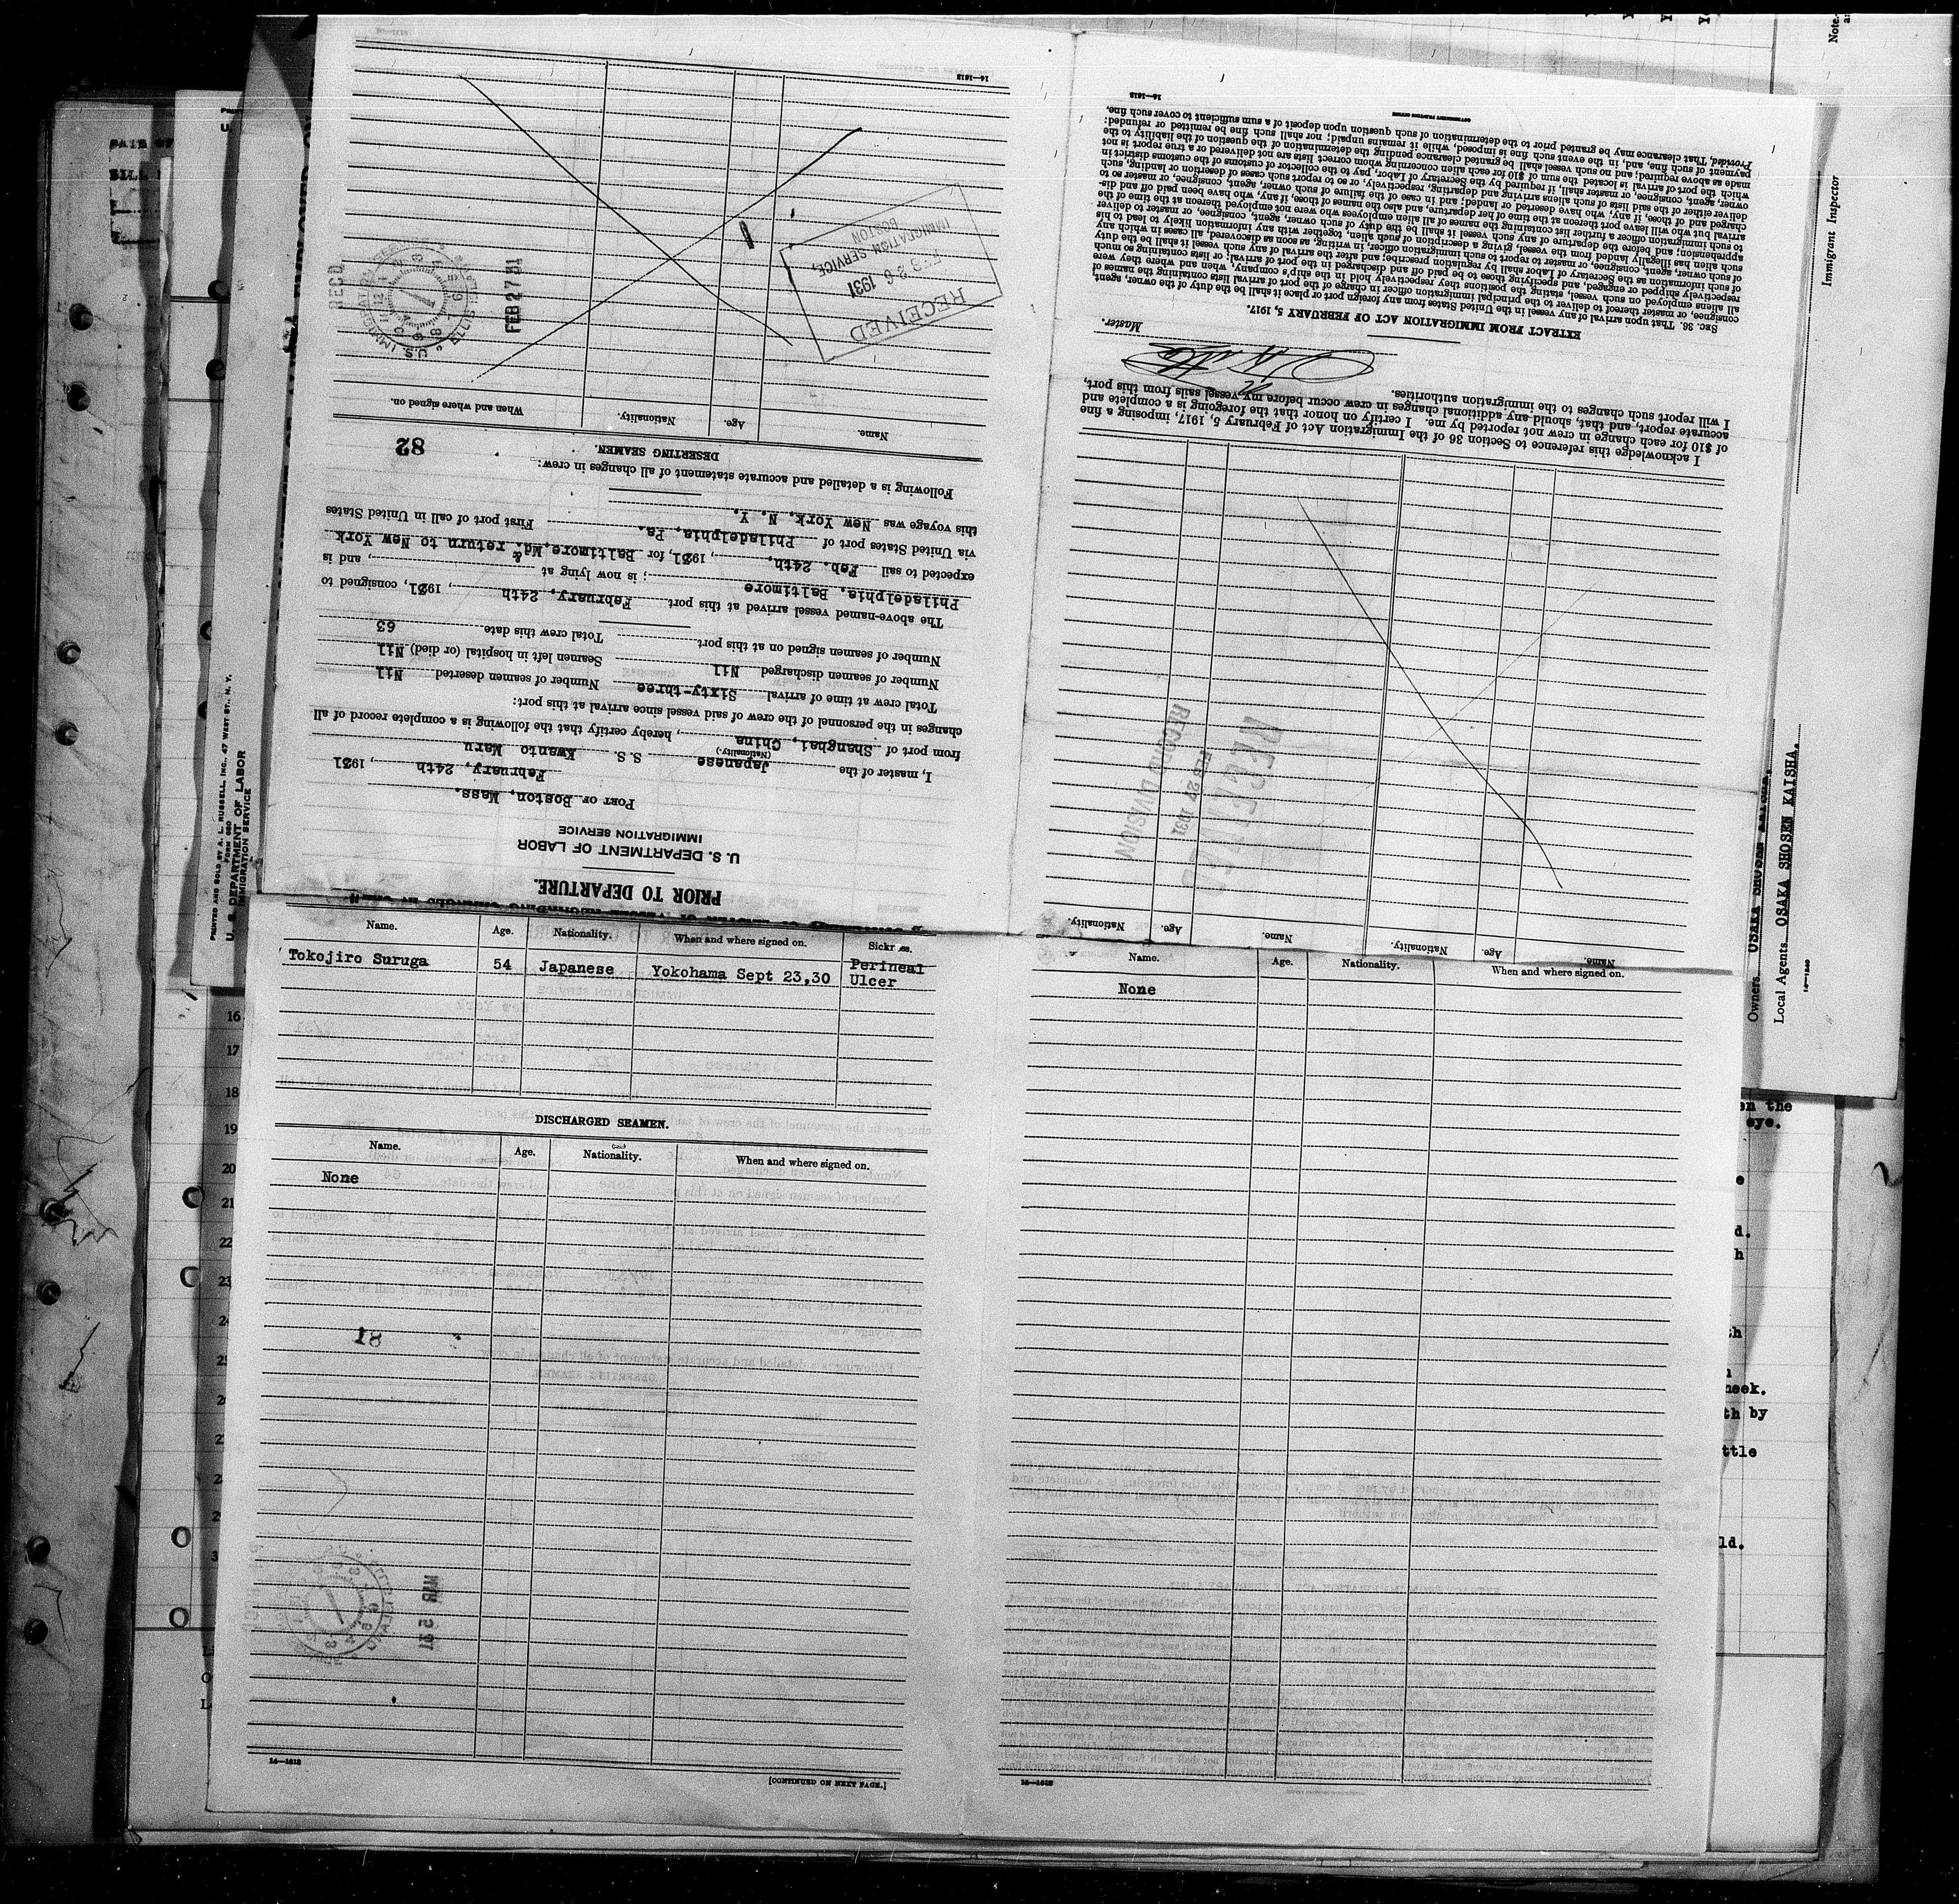 PRIOR TO DEPARTURE.
U. S. DEPARTMENT OF LABOR
IMMIGRATION SERVICE
PORT OF Boston, Mass.
February, 24th, 1931
I, master of the Japanese S. S. Kwanto Maru
(Nationality.)
from port of Shanghai, China, hereby certify that the following is a complete record of all
changes in the personnel of the crew of said vessel since arrival at this port:
Total crew at time of arrival Sixty-three Number of seamen deserted Nil
Number of seamen discharged Nil Seamen left in hospital (or died) Nil
Number of seamen signed on at this port Total crew this date 63
The above-named vessel arrived at this port February, 24th, 1931, consigned to
Philadelphia, Baltimore; is now lying at , and is
expected to sail Feb. 24th, , 1931, for Baltimore, Md. & return to New York
via United States port of Philadelphia, Pa. First port of call in United States
this voyage was New York, N. Y.
Following is a detailed and accurate statement of all changes in crew:
DESERTING SEAMEN.
82
Name. Age. Nationality. When and where signed on.
RECEIVED
FEB 26 1931
IMMIGRATION SERVICE,
BOSTON
FEB 27 31
REC'D
14—1613
Name. Age. Nationality. Name. Age. Nationality.
RECEIVED
FEB 27 1931
RECORD DIVISION
I acknowledge this reference to Section 36 of the Immigration Act of February 5, 1917, imposing a fine
of $10 for each change in crew not reported by me. I certify on honor that the foregoing is a complete and
accurate report, and that, should any additional changes in crew occur before my vessel sails from this port,
I will report such changes to the immigration authorities.
Master.
EXTRACT FROM IMMIGRATION ACT OF FEBRUARY 5, 1917.
SEC. 36. That upon arrival of any vessel in the United States from any foreign port or place it shall be the duty of the owner, agent,
consignee, or master thereof to deliver to the principal immigration officer in charge of the port of arrival lists containing the names of
all aliens employed on such vessel, stating the positions they respectively hold in the ship's company, when and where they were
respectively shipped or engaged, and specifying those to be paid off and discharged in the port of arrival; or lists containing so much
of such information as the Secretary of Labor shall by regulation prescribe; and after the arrival of any such vessel it shall be the duty
of such owner, agent, consignee, or master to report to such immigration officer, in writing, as soon as discovered, all cases in which any
such alien has illegally landed from the vessel, giving a description of such alien, together with any information likely to lead to his
apprehension; and before the departure of any such vessel it shall be the duty of such owner, agent, consignee, or master to deliver
to such immigration officer a further list containing the names of all alien employees who were not employed thereon at the time of the
arrival but who will leave port thereon at the time of her departure, and also the names of those, if any, who have been paid off and dis-
charged and of those, if any, who have deserted or landed; and in case of the failure of such owner, agent, consignee, or master so to
deliver either of the said lists of such aliens arriving and departing, respectively, or so to report such cases of desertion or landing, such
owner, agent, consignee, or master shall, if required by the Secretary of Labor, pay to the collector of customs of the customs district in
which the port of arrival is located the sum of $10 for each alien concerning whom correct lists are not delivered or a true report is not
made as above required; and no such vessel shall be granted clearance pending the determination of the question of the liability to the
payment of such fine, and, in the event such fine is imposed, while it remains unpaid; nor shall such fine be remitted or refunded:
Provided, That clearance may be granted prior to the determination of such question upon deposit of a sum sufficient to cover such fine.
GOVERNMENT PRINTING OFFICE
14—1613
Name. Age. Nationality. When and where signed on. Sickness.
Tokojiro Suruga 54 Japanese Yokohama Sept 23,30 Perineal
Ulcer
DISCHARGED SEAMEN.
Name. Age. Nationality. When and where signed on.
None
81
MAR 5 31
14—1613
[CONTINUED ON NEXT PAGE.]
Name. Age. Nationality. When and where signed on.
None
14—1613
PRINTED AND SOLD BY A. L. RUSSELL, INC., 47 WEST ST., N. Y.
FORM 680
U. S. DEPARTMENT OF LABOR
IMMIGRATION SERVICE
16
17
18
19
20
21
22
23
Immigrant Inspector
Note.
Owners OSAKA SHOSEN KAISHA.
Local Agents. OOSAKA SHOSEN KAISHA.
en the
eye.
d.
th by
ttle
ld.